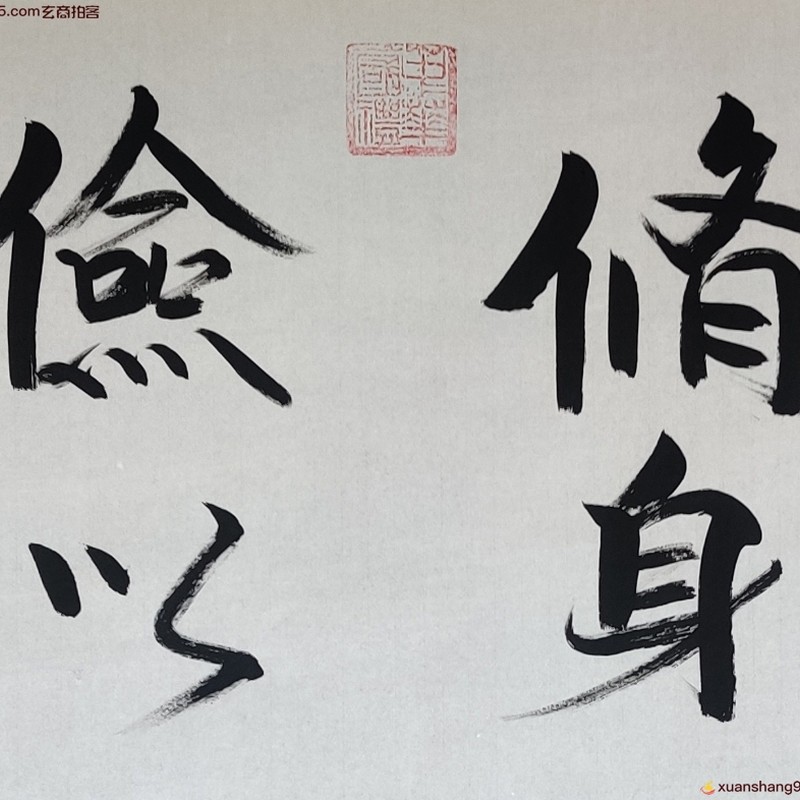 脩身
儉以
5.com玄商拍客
xuanshang9